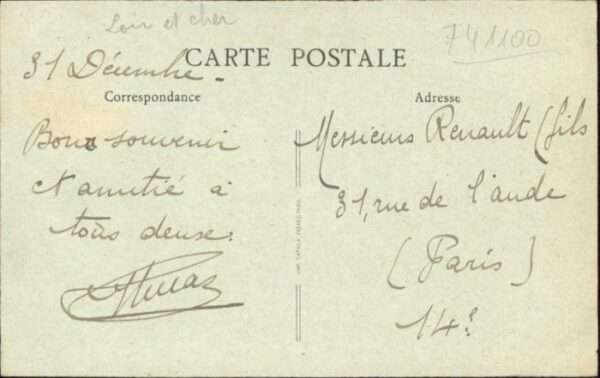 Loir et cher
741100
31 Décembre -
CARTE POSTALE
Correspondance
Adresse
Bons souvenir
et amitié à
tous deuse.
Messieurs Renault (fils
31, rue de l'aude
(Paris)
14e